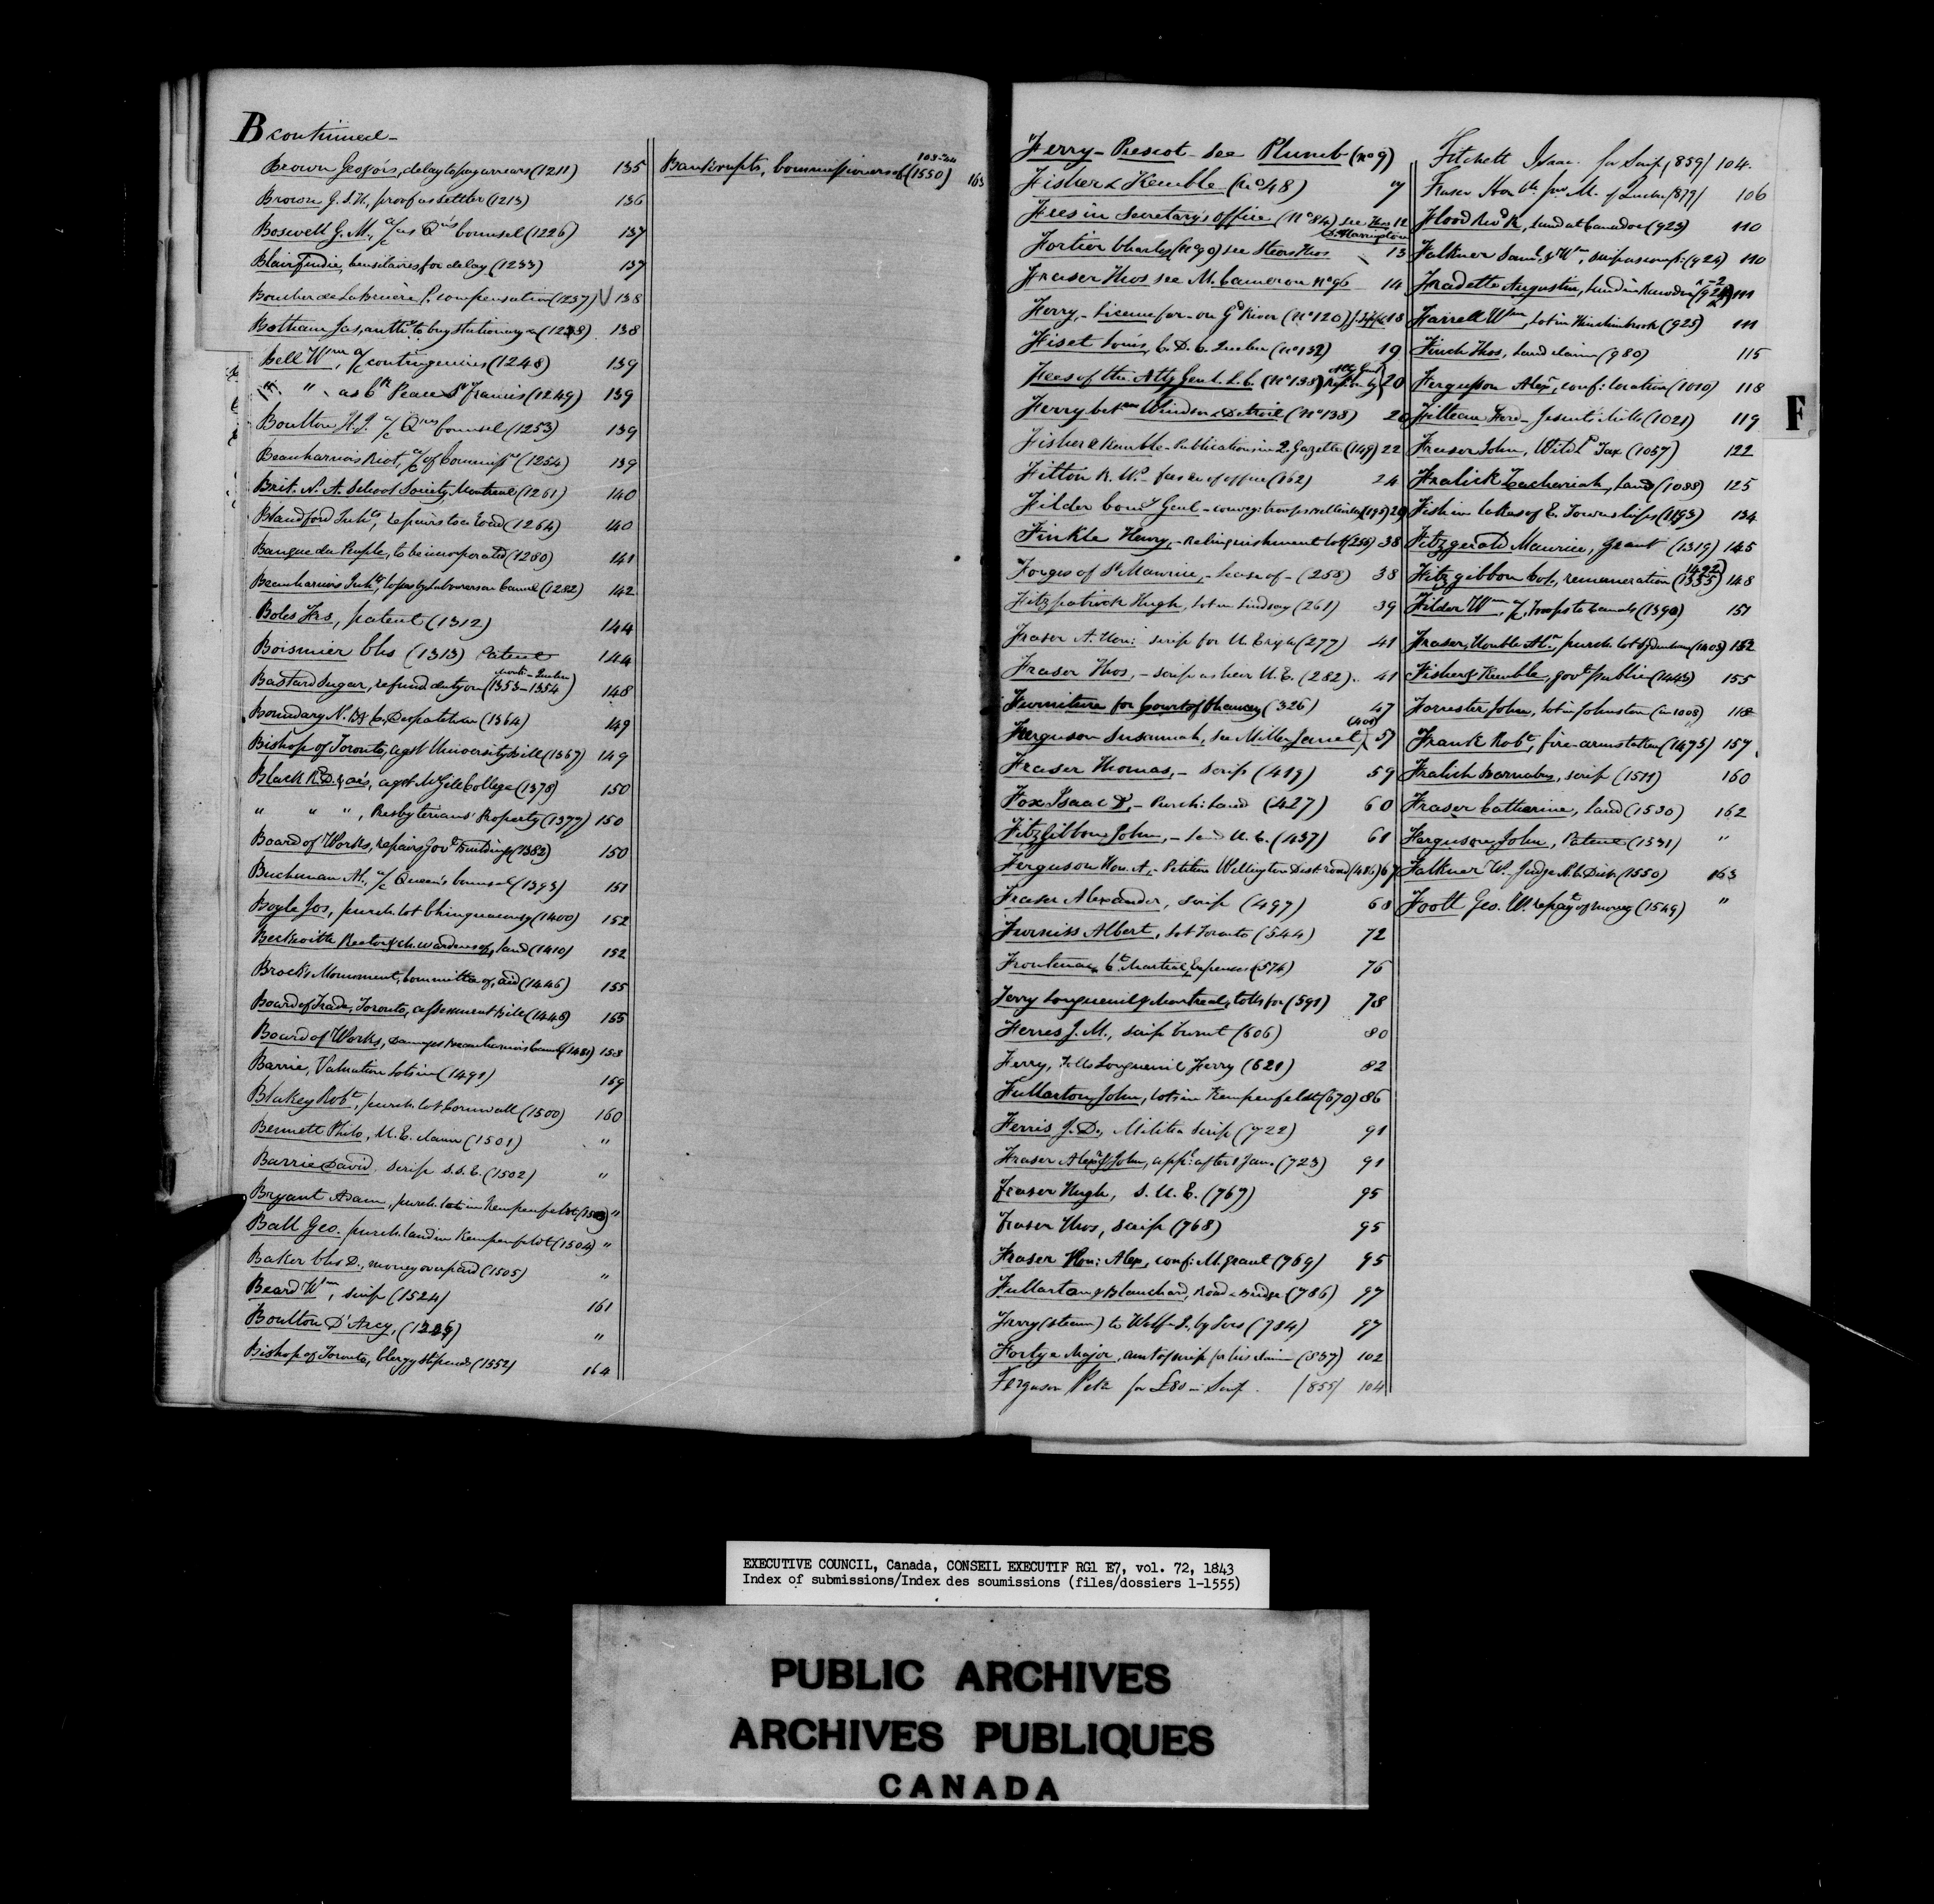 B continued -
Brown Geo & ors, delay to pay arrears (1211) 135
Brown G. S. H, proof as settler (1213) 136
Boswell G. M., a/c as Qns Counsel (1226) 137
Blairfindie, Censitaires for delay (1233) 137
Boucher de LaBruère P. compensation (1237) V 138
Botham Jas, authy to buy stationery (1238) 138
Bell Wm, a/c contingencies (1248) 139
" " as Clk Peace St Francis (1249) 139
Boulton H. J. a/c Qns Counsel (1253) 139
Beauharnois Riot, a/c of Commissr (1254) 139
Brit. N. A. School Society, Montreal (1261) 140
Blandford Inhts, repairs to a Road (1264) 140
Banque du Peuple, to be incorporated (1280) 141
Beauharnois Inhts, by Labourers on Canal (1282) 142
Boles Frs, patent (1312) 144
Boismier Chs (1313) Patent 144
Bastard Sugar, refund duty on (1353-1354) 148
Boundary N. B & C, Despatch (1364) 149
Bishop of Toronto, agst University Bill (1367) 149
Black Rd D. & ors, agst McGill College (1378) 150
" " ", Presbyterians' Property (1377) 150
Board of Works, repairs Govt Buildings (1382) 150
Buchanan A., a/c Queen's Counsel (1393) 151
Boyle Jos, purch. lot Chinguacousy (1400) 152
Beckwith Rector & Ch. wardens of, land (1410) 152
Brock's Monument, Committee of, aid (1446) 155
Board of Trade, Toronto, assessment Bill (1448) 155
Board of Works, Damages Beauharnois Canal (1481) 158
Barrie, Valuation lots in (1491) 159
Blakey Robt, purch. lot Cornwall (1500) 160
Bennett Philo, U. E. claim (1501) "
Barrie David, scrip S.U.E. (1502) "
Bryant Adam, purch. lot in Kempenfeldt (1503) "
Ball Geo. purch. land in Kempenfeldt (1504) "
Baker Chs D., money overpaid (1505) "
Beard Wm, scrip (1524) 161
Boulton D'Arcy, "
Bishop of Toronto, Clergy stipends (1552) 164
Bankrupts, Commissioners of (1550) 163
Ferry - Prescot - see Plumb (no 9)
Fisher & Kemble (No 48) 7
Fees in Secretary's office (No 84) see Thos 12
D. Harrington
Fortier Charles (No 90) see Steers Thos 13
Fraser Thos see M. Cameron No 96 14
Ferry, - License for - on Gd River (No 120) 18
Fiset Louis, C. D. C. Quebec (No 132) 19
Fees of the Atty Genl. L. C. (No 138) 20
Ferry betwn Windsor & Detroit (No 138) 20
Fisher & Kemble - Publications in Q. Gazette (149) 22
Fitton R. W. - fees on office (162) 24
Filder Comy Genl - conveyg troops (195) 29
Finkle Henry, - Relinquishment lot (256) 38
Forges of St Maurice, - Lease of - (258) 38
Fitzpatrick Hugh, lot in Lindsay (261) 39
Fraser A. Hon: scrip for U. E. rights (277) 41
Fraser Thos, - scrip as heir U. E. (282). 41
Furniture for Court of Chancery (326) 47
Ferguson Susannah, see Miller Janet (400) 57
Fraser Thomas, - scrip (419) 59
Fox Isaac D, - Purch: Land (427) 60
Fitzgibbon John, - land U. E. (437) 61
Ferguson Hon. A, - Petition Wellington Dist. road (486) 67
Fraser Alexander, scrip (497) 68
Furniss Albert, lot Toronto (544) 72
Frontenac, Ct Martial, Expenses (574) 76
Ferry Longueuil & Montreal, tolls for (591) 78
Ferres J. M., scrip burnt (606) 80
Ferry, Tolls Longueuil Ferry (621) 82
Fullarton John, lots in Kempenfeldt (670) 86
Ferris J. D., Militia Scrip (722) 91
Fraser Alexr & John, appl: after 1 Jan. (723) 91
Fraser Hugh, S. U. E. (767) 95
Fraser Thos, scrip (768) 95
Fraser Hon: Alex, conf: M. grant (769) 95
Fullarton & Blanchard, Road & Bridge (786) 97
Ferry (steam) to Wolfe I. by Ives (784) 97
Fortye Major, amt of scrip for his claim (837) 102
Ferguson Petr for £80 in Scrip. (855) 104
Fitchett Isaac for Scrip (859) 104.
Fraser Honble M. of Quebec (879) 106
Flood Revd R, land at Caradoc (923) 110
Falkner Saml. & Wm, (924) 110
Fradette Augustin, land in Rawdon 111
Farrell Wm, lot in Hinchinbrook (925) 111
Finch Thos, land claim (980) 115
Ferguson Alexr, conf: location (1010) 118
Filteau Ferd - Jesuits' Mills (1021) 119
Fraser John, Wild Ld Tax (1057) 122
Fralick Zachariah, land (1088) 125
Fish in lakes of E. Townships (1193) 134
Fitzgerald Maurice, grant (1319) 145
Fitzgibbon Col, remuneration (1355) 1492 148
Filder Wm, a/c Troops to Canals (1390) 151
Fraser, Honble Alr, purch. lot (1403) 152
Fisher & Kemble, govt public (1443) 155
Forrester John, lot in Johnston (in 1008) 118
Frank Robt, fire-arms taken (1475) 157
Fralick Barnabas, scrip (1511) 160
Fraser Catherine, land (1530) 162
Ferguson John, Patent (1531) "
Falkner W. Judge N. C. Dist. (1550) 163
Foott Geo. W. repayt of money (1549) "
F
EXECUTIVE COUNCIL, Canada, CONSEIL EXECUTIF RG1 E7, vol. 72, 1843
Index of submissions/Index des soumissions (files/dossiers 1-1555)
PUBLIC ARCHIVES
ARCHIVES PUBLIQUES
CANADA